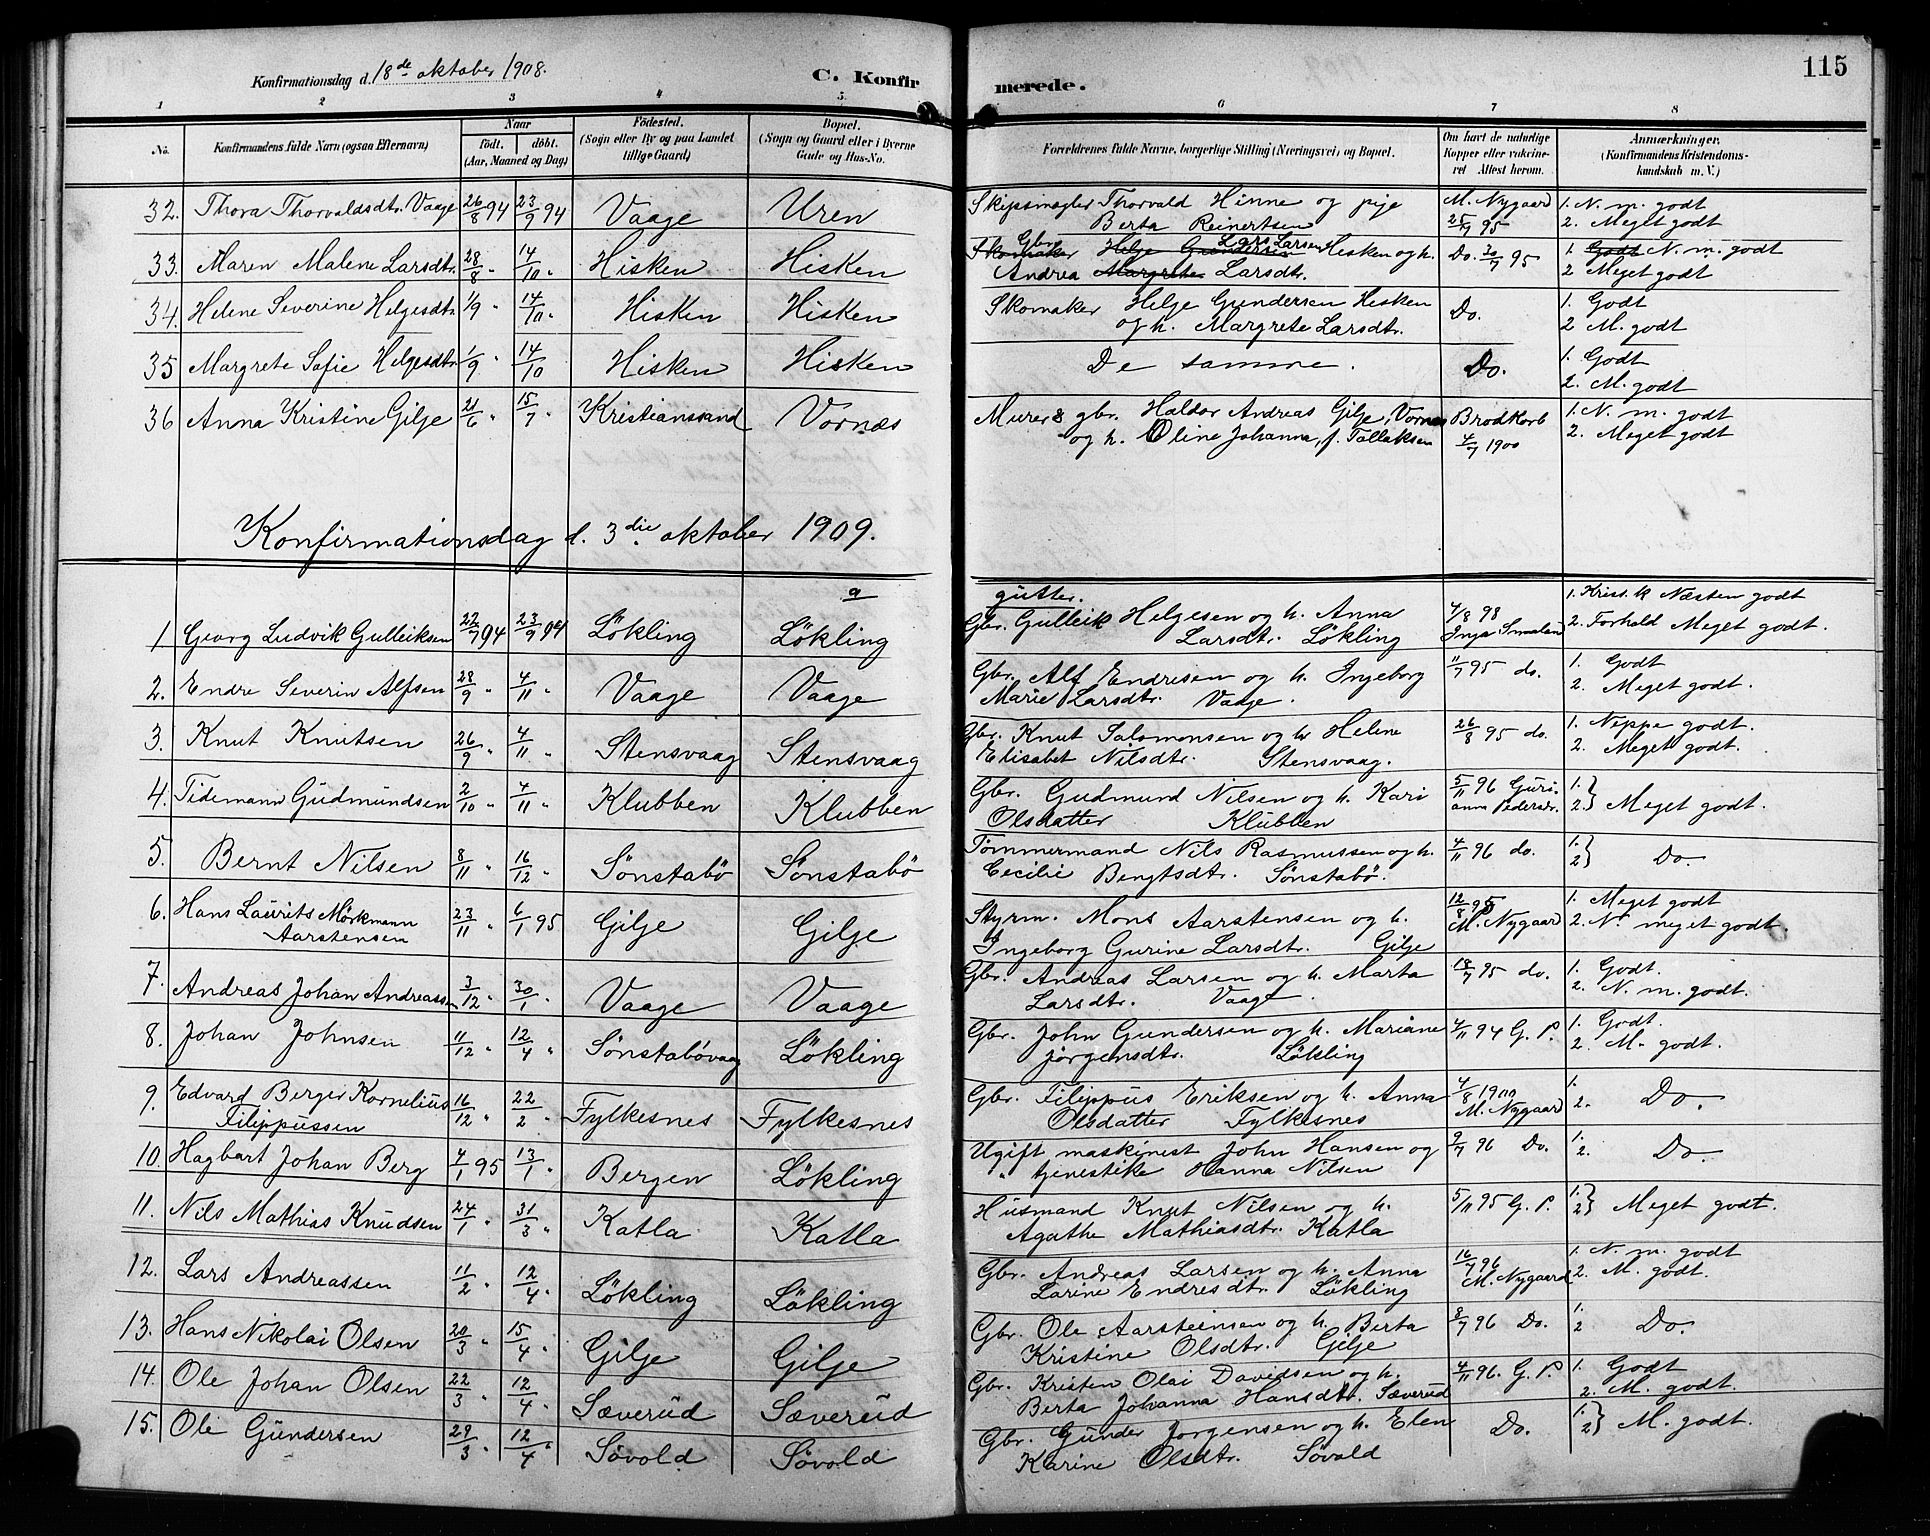 115
Konfirmationsdag d. 18de oktober 1908.
C. Konfirmerede.
1 2 3 4 5 6 7 8
No. Konfirmandens fulde Navn (ogsaa Efternavn) Naar født. døbt. (Aar, Maaned og Dag) Fødested. (Sogn eller By og paa Landet tillige Gaard) Bopæl. (Sogn og Gaard eller i Byerne Gade og Hus-No. Forældrenes fulde Navne, borgerlige Stilling (Næringsvei) og Bopæl. Om havt de naturlige Kopper eller vakcineret Attest herom. Anmærkninger. (Konfirmandens Kristendomskundskab m. V.)
32. Thora Thorvaldsdtr. Vaage 26/8 94 23/9 94 Vaage Uren Skipsmægler Thorvald Hinne og pige M. Nygaard 1. N. m. godt
Berta Reinertsen 25/7 95 2. Meget godt
33. Maren Malene Larsdtr. 28/8 " 14/10 " Hisken Hisken Skomaker Gbr. Helge Gundersen Lars Larsen Hisken og h. Do. 30/7 95 1. Godt N. m. godt
Andrea Margrete Larsdtr. 2 Meget godt
34. Helene Severine Helgesdtr. 1/9 " 14/10 " Hisken Hisken Skomaker Helge Gundersen Hisken Do. 1. Godt
og h. Margrete Larsdtr. 2 M. godt
35 Margrete Sofie Helgesdtr. 1/9 " 14/10 Hisken Hisken De samme. Do. 1. Godt
2. M. godt
36 Anna Kristine Gilje 21/6 " 15/7 " Kristianssand Vornæs Murer & gbr. Haldor Andreas Gilje, Vornæs Brodkorb 1. N. m. godt
og h. Oline Johanna, f. Tollaksen 4/7 1900 2. Meget godt
Konfirmationsdag d. 3die oktober 1909.
a gutter.
1 Georg Ludvik Gulleiksen 22/7 94 23/9 94 Løkling Løkling Gbr. Gulleik Helgesen og h. Anna 4/8 98 1. Krist. k Næsten godt
Larsdtr. Løkling 2. Forhold Meget godt.
2. Endre Severin Alfsen 28/9 " 4/11 " Vaage Vaage Gbr. Alf Endresen og h. Ingeborg 11/7 95 do. 1. Godt
Marie Larsdtr. Vaage. 2. Meget godt.
3. Knut Knutsen 26/9 " 4/11 " Stensvaag Stensvaag Gbr. Knut Salomonsen og h Helene 26/8 95 do. 1. Neppe godt.
Elisabet Nilsdtr. Stensvaag. 2. Meget godt.
4. Tidemann Gudmundsen 2/10 " 4/11 " Klubben Klubben Gbr. Gudmund Nilsen og h. Kari 5/11 96 Guri- 1.
Olsdatter Klubben anna Pedersdr. 2. Meget godt.
5. Bernt Nilsen 8/11 " 16/12 " Sønstabø Sønstabø Tømmermand Nils Rasmussen og h. 4/11 96 do. 1. Do.
Cecilie Bengtsdtr. Sønstabø. 2
6. Hans Laurits Mørkmann 23/11 " 6/1 95 Gilje Gilje Styrm. Mons Aarstensen og h. 12/8 95 1. Meget godt
Aarstensen Ingeborg Gurine Larsdtr. Gilje M. Nygaard 2. N. meget godt.
7. Andreas Johan Andreassen 3/12 " 30/1 " Vaage Vaage Gbr. Andreas Larsen og h. Marta 18/7 95 do. 1. Godt.
Larsdtr. Vaage. 2. N. m. godt.
8. Johan Johnsen 11/12 " 12/4 " Sønstabøvaag Løkling Gbr. John Gundersen og h. Mariane 4/11 94 G. P. 1. Godt.
Jørgensdtr. Løkling 2. M. godt.
9. Edvard Berger Kornelius 16/12 " 22/2 " Fylkesnes Fylkesnes Gbr. Filippus Eriksen og h. Anna 4/8 1900 1. Do.
Filippussen Olsdatter Fylkesnes M. Nygaard 2.
10. Hagbart Johan Berg 4/1 95 13/1 " Bergen Løkling Ugift maskinist John Hansen og 9/7 96 Do. 1. Do.
" tjenestike Hanna Nilsen 2.
11. Nils Mathias Knudsen 24/1 " 31/3 " Katla Katla Husmand Knut Nilsen og h. 5/11 95 G. P. 1. Meget godt.
Agathe Mathiasdtr. Katla 2
12. Lars Andreassen 11/2 " 12/4 " Løkling Løkling Gbr. Andreas Larsen og h. Anna 16/7 96 1. N. m. godt
Larine Endresdtr. Løkling M. Nygaard 2. M. godt.
13. Hans Nikolai Olsen 20/3 " 15/4 " Gilje Gilje Gbr. Ole Aarsteinsen og h. Berta 8/7 96 Do. 1. Do.
Kristine Olsdtr. Gilje 2
14. Ole Johan Olsen 22/3 " 12/4 " Sæverud Sæverud Gbr. Kristen Olai Davidsen og h. 4/11 96. G. P. 1. Godt
Berta Johanna Hansdtr. Sæverud 2. M. godt.
15. Ole Gundersen 29/3 " 12/4 " Søvold Søvold Gbr. Gunder Jørgensen og h. Elen Do. 1. M. godt.
Karine Olsdtr. Søvold 2